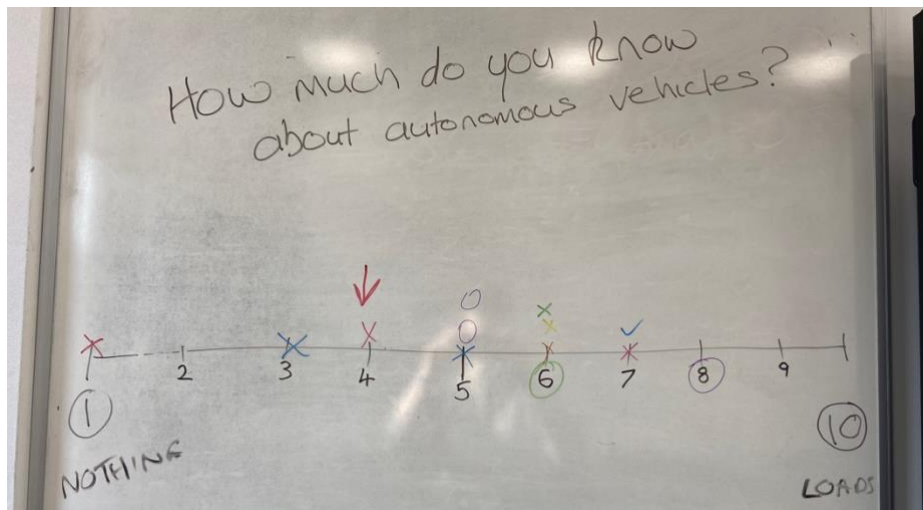 How much do you know
about autonomous vehicles?
2 3 4 5 6 7 8 9
1 10
NOTHING LOADS